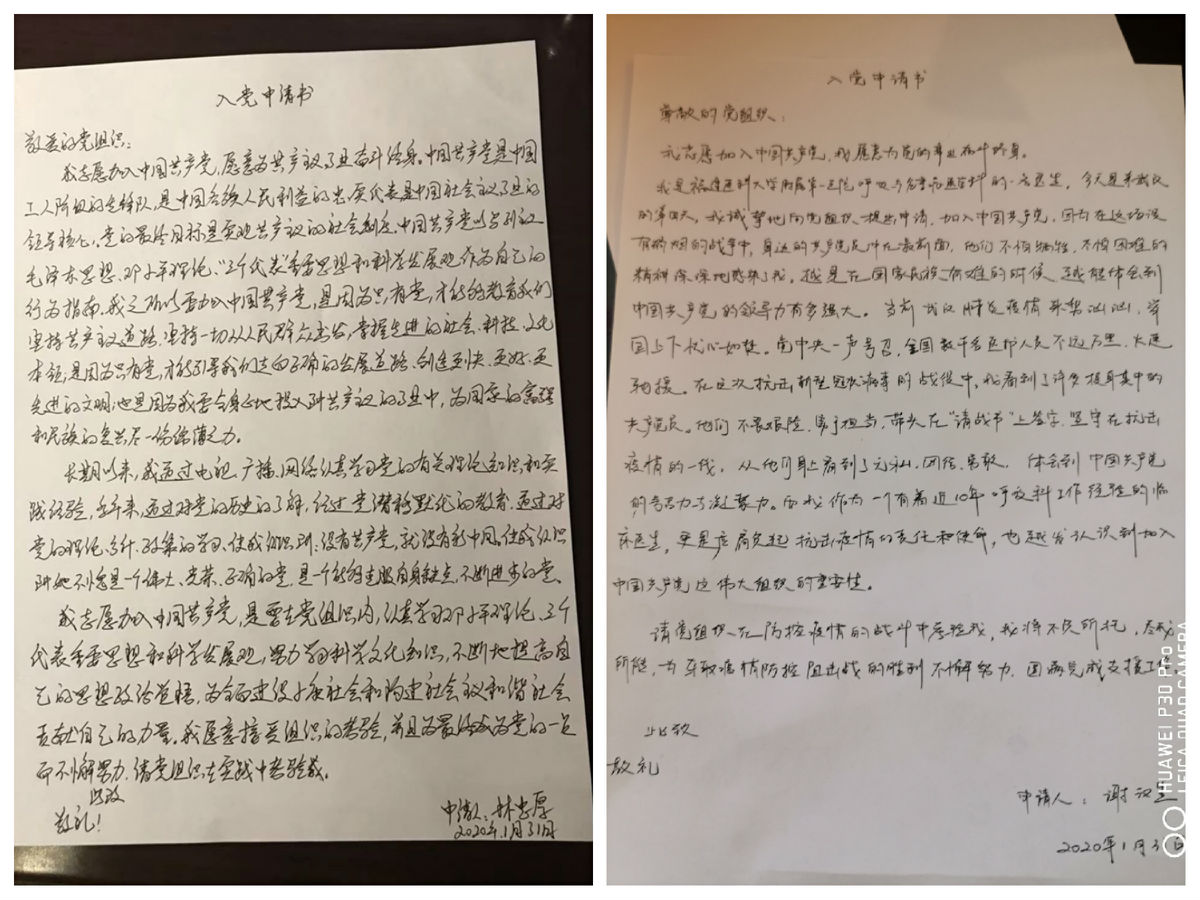 入党申请书
敬爱的党组织:
我志愿加入中国共产党,愿意为共产主义事业奋斗终身。中国共产党是中国
工人阶级的先锋队,是中国各族人民利益的忠实代表,是中国社会主义事业的
领导核心,党的最终目标是实现共产主义的社会制度。中国共产党以马列主义
毛泽东思想、邓小平理论、“三个代表”重要思想和科学发展观作为自己的
行为指南。我之所以要加入中国共产党,是因为只有党,才能够教育我们
坚持共产主义道路,坚持一切从人民群众出发,掌握先进的社会、科技、文化
本领;是因为只有党,才能引导我们走向正确的发展道路,创造更快、更好、更
先进的文明;也是因为我要全身心地投入到共产主义的事业中,为国家的富强
和民族的复兴尽一份绵薄之力。
长期以来,我通过电视、广播、网络认真学习党的有关理论知识和实
践经验,多年来,通过对党的历史的了解,经过党潜移默化的教育,通过对
党的理论、方针、政策的学习,使我认识到:没有共产党,就没有新中国。使我认识
到她不愧是一个伟大、光荣、正确的党,是一个能够克服自身缺点,不断进步的党。
我志愿加入中国共产党,是要在党组织内,认真学习邓小平理论、三个
代表重要思想和科学发展观,努力学习科学文化知识,不断地提高自
己的思想政治觉悟,为全面建设小康社会和构建社会主义和谐社会
贡献自己的力量。我愿意接受组织的考验,并且为最终成为党的一员
而不懈努力,请党组织在实践中考验我。
此致
敬礼!
申请人:林忠厚
2020年1月31日
入党申请书
尊敬的党组织:
我志愿加入中国共产党,我愿意为党的事业奋斗终身。
我是福建医科大学附属第一医院呼吸与危重症医学科的一名医生,今天是来武汉
的第四天,我诚挚地向党组织提出申请,加入中国共产党,因为在这场没
有硝烟的战争中,身边的共产党员冲在最前面,他们不怕牺牲、不惧困难的
精神深深地感染了我。越是在国家民族有难的时候,越能体会到
中国共产党的领导力有多强大。当前武汉肺炎疫情来势汹汹,举
国上下忧心如焚。党中央一声号召,全国数千名医护人员不远万里,火速
驰援。在这次抗击新型冠状病毒的战役中,我看到了许多投身其中的
共产党员。他们不畏艰险、勇于担当,带头在“请战书”上签字,坚守在抗击
疫情的一线,从他们身上看到了无私、团结、勇敢,体会到中国共产党
的号召力与凝聚力。而我作为一个有着近10年呼吸科工作经验的临
床医生,更是应肩负起抗击疫情的责任和使命,也越发认识到加入
中国共产党这伟大组织的重要性。
请党组织在防控疫情的战斗中考验我,我将不负所托,尽我
所能,为夺取疫情防控阻击战的胜利不懈努力,圆满完成支援工作
此致
敬礼
申请人:谢
2020年1月3 日
HUAWEI P30 PRO
LEICA QUAD CAMERA